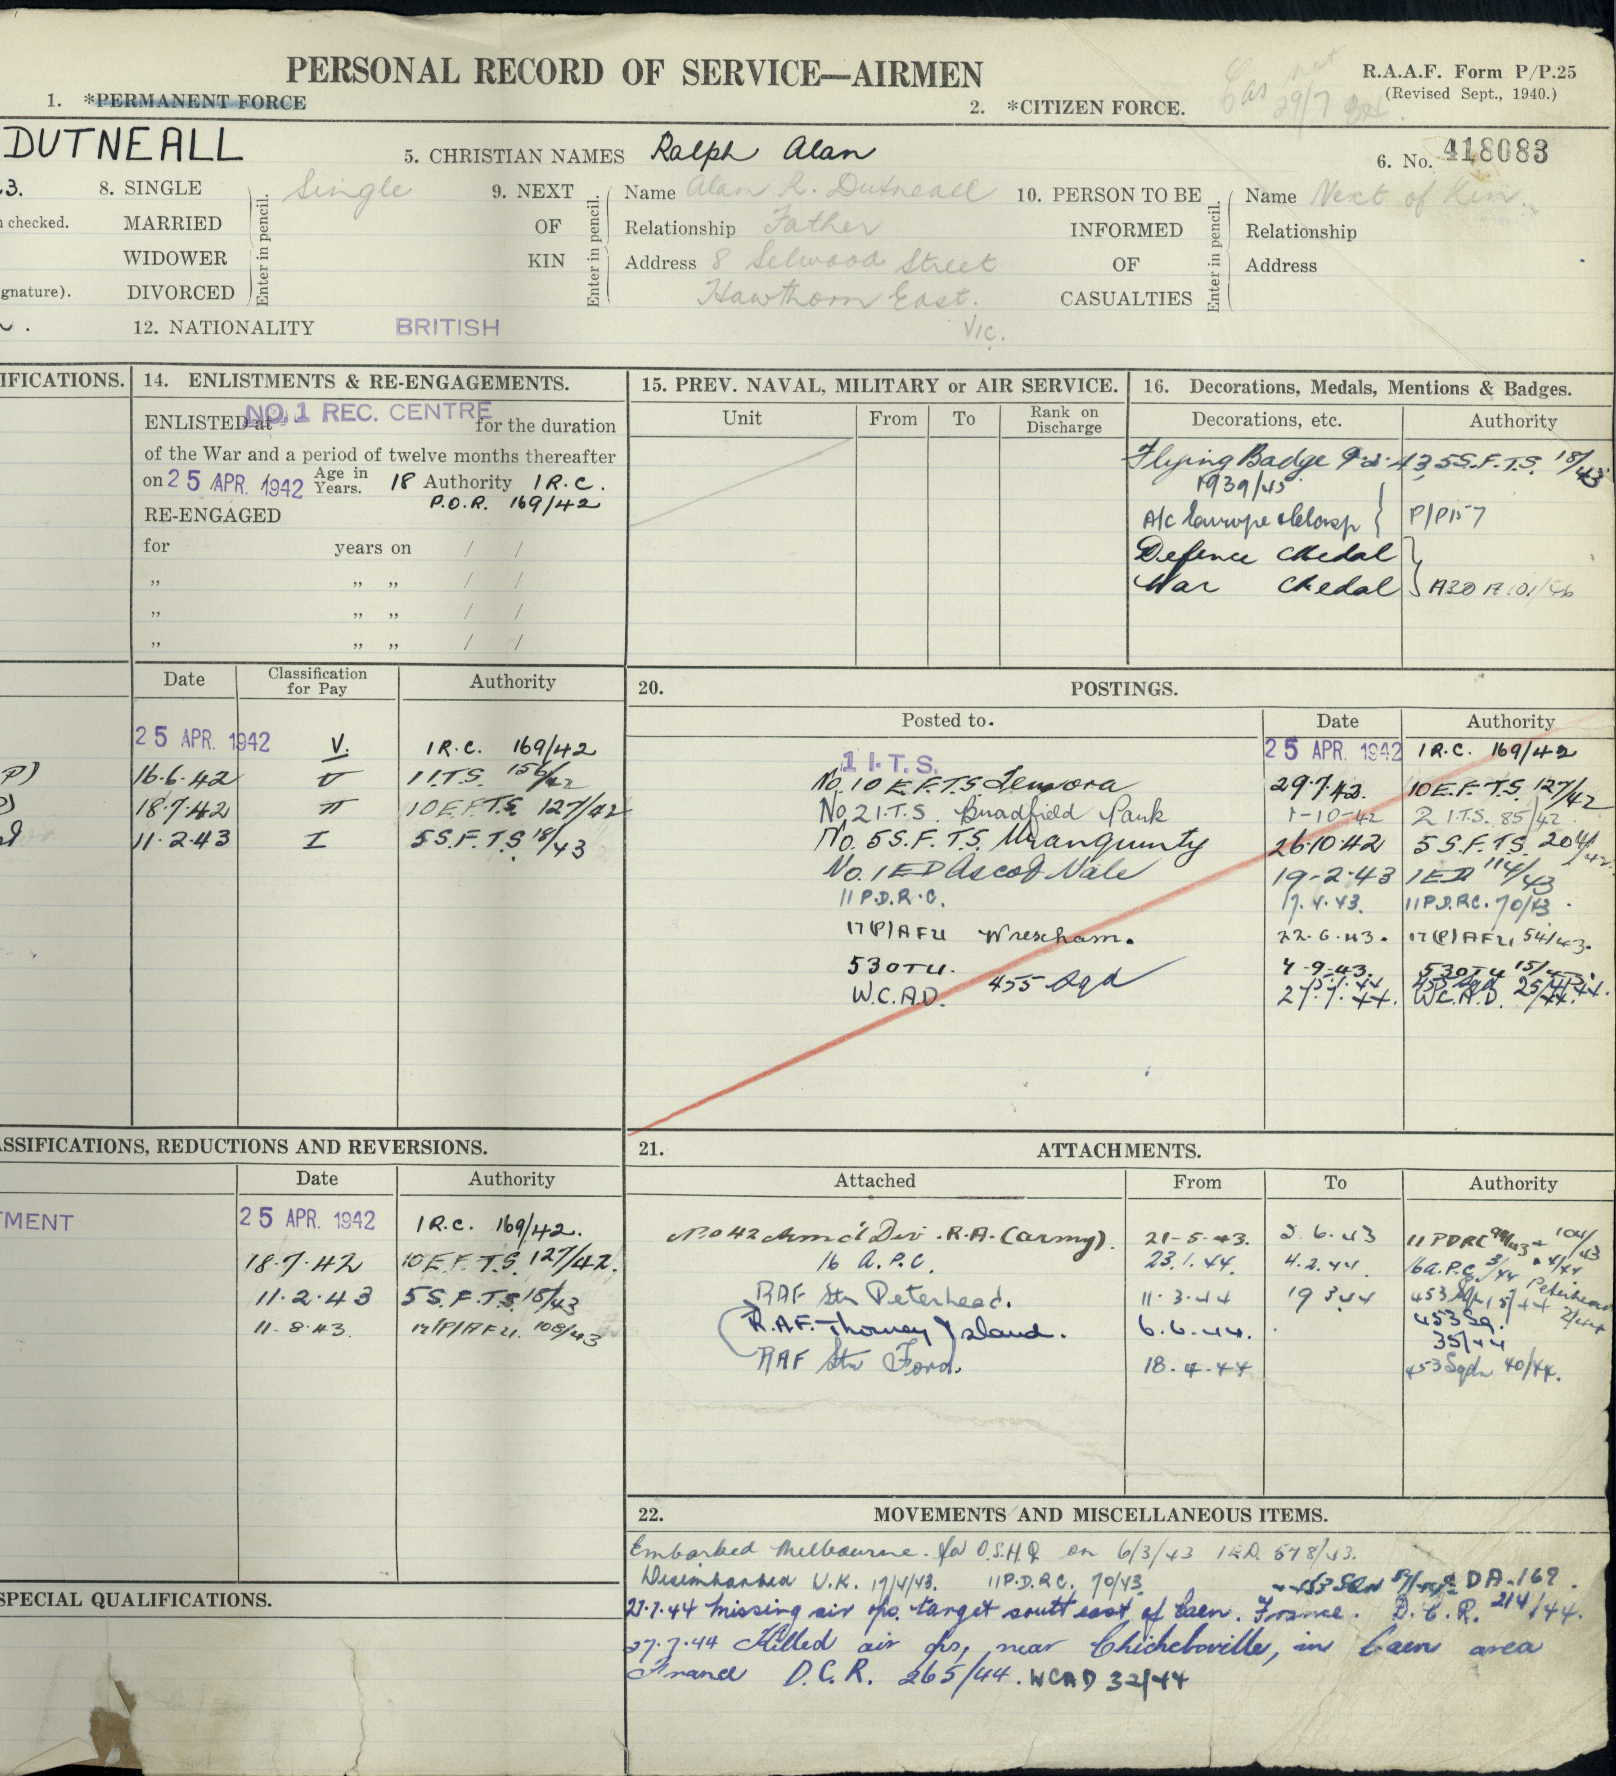 PERSONAL RECORD OF SERVICE—AIRMEN
R.A.A.F. Form P/P.25
(Revised Sept., 1940.)
1. *PERMANENT FORCE
2. *CITIZEN FORCE.
Cas 29/7
DUTNEALL
5. CHRISTIAN NAMES Ralph Alan
6. No. 418083
3.
8. SINGLE
MARRIED
WIDOWER
DIVORCED
Enter in pencil.
Single
checked.
gnature).
9. NEXT
OF
KIN
Enter in pencil.
Name Alan R. Dutneall
Relationship Father
Address 8 Selwood Street
Hawthorn East.
Vic.
10. PERSON TO BE
INFORMED
OF
CASUALTIES
Enter in pencil.
Name Next of Kin.
Relationship
Address
12. NATIONALITY BRITISH
IFICATIONS.
14. ENLISTMENTS & RE-ENGAGEMENTS.
ENLISTED at NO.1 REC. CENTRE for the duration
of the War and a period of twelve months thereafter
on 25 APR. 1942 Age in Years. 18 Authority 1 R.C.
P.O.R. 169/42
RE-ENGAGED
for years on / /
„ „ „ / /
„ „ „ / /
„ „ „ / /
15. PREV. NAVAL, MILITARY or AIR SERVICE.
Unit From To Rank on Discharge
16. Decorations, Medals, Mentions & Badges.
Decorations, etc. Authority
Flying Badge 5 S.F.T.S. 18/43
1939/45
A/C Europe P/P157
Defence Medal
War Medal
Date Classification for Pay Authority
25 APR. 1942 V. 1 R.C. 169/42
16.6.42 V 1 I.T.S. 156/42
18.7.42 II 10 E.F.T.S. 127/42
11.2.43 I 5 S.F.T.S. 18/43
20. POSTINGS.
Posted to. Date Authority
1 I.T.S. 25 APR. 1942 1 R.C. 169/42
No. 10 E.F.T.S. Temora 29.7.42. 10 E.F.T.S. 127/42
No. 2 I.T.S. Bradfield Park 1-10-42 2 I.T.S. 85/42
No. 5 S.F.T.S. Uranquinty 26.10.42 5 S.F.T.S. 204/42
No. 1 ED Ascot Vale 19-2-43 1 ED 114/43
11 P.D.R.C. 17.4.43. 11 P.D.R.C. 70/43.
17(P)AFU Wrexham. 22.6.43. 17(P)AFU 54/43.
53 OTU. 7-9-43. 53 OTU
455 Sqd
W.C.A.D. 27.7.44. W.C.A.D. 25/44.
ASSIFICATIONS, REDUCTIONS AND REVERSIONS.
Date Authority
TMENT 25 APR. 1942 1 R.C. 169/42.
18.7.42 10 E.F.T.S. 127/42.
11.2.43 5 S.F.T.S. 18/43
11.8.43. 17(P)AFU. 108/43
21. ATTACHMENTS.
Attached From To Authority
No 42 Arm'd Div. R.A. (army). 21-5-43. 5.6.43 11 PDRC
16 A.P.C. 23.1.44. 4.2.44. 16 A.P.C.
RAF Stn Peterhead. 11.3.44 19 3 44 453 Peterhead
R.A.F. Thorney Island. 6.6.44. 453 Sq. 35/44
RAF Stn Ford. 18.4.44 453 Sqdn 40/44.
SPECIAL QUALIFICATIONS.
22. MOVEMENTS AND MISCELLANEOUS ITEMS.
Embarked Melbourne. for O.S.H.Q on 6/3/43 1 ED. 578/43.
Disembarked U.K. 17/4/43. 11 P.D.R.C. 70/43. DA.169.
27.7.44 Missing air ops. target south east of Caen. France. D.C.R. 214/44.
27.7.44 Killed air ops, near Chicheboville, in Caen area
France D.C.R. 265/44. WCAD 32/44